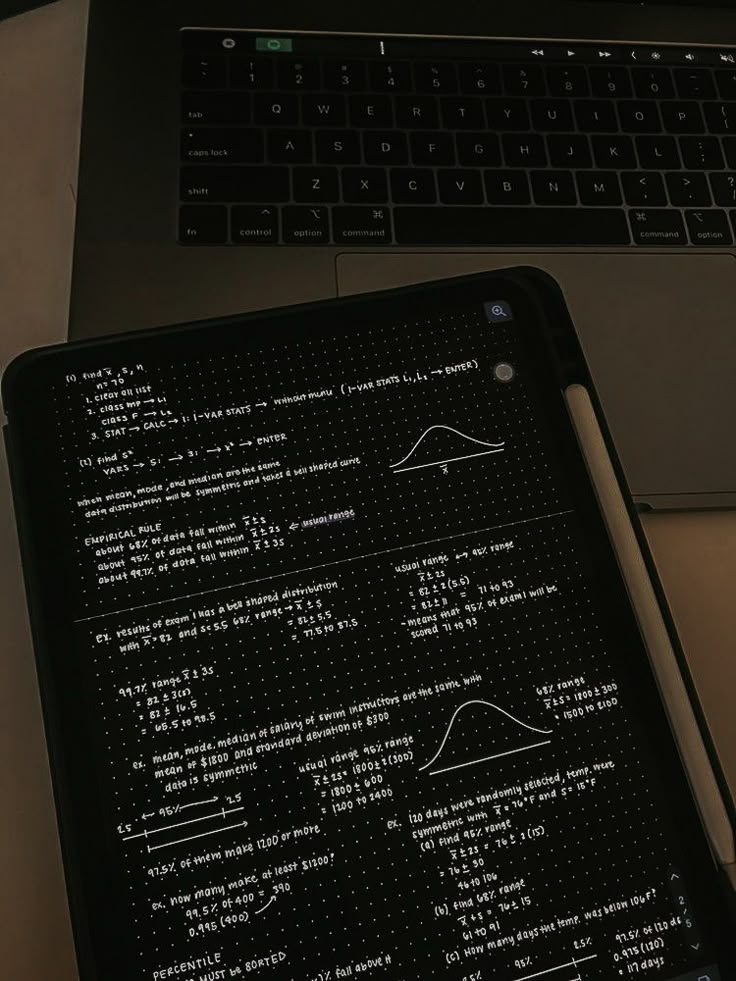 tab
Q W E R T Y U I O P
caps lock
A S D F G H J K L
shift
Z X C V B N M
fn control option command command option
(1) find x̄, s, n
n = 70
1. clear all list
2. class mp → L1
class F → L2
3. STAT → CALC → 1: 1-VAR STATS → without menu (1-VAR STATS L1, L2 → ENTER)
(2) find s²
VARS → 5: → 3: → x² → ENTER
when mean, mode, and median are the same
data distribution will be symmetric and takes a bell shaped curve
x̄
EMPIRICAL RULE
about 68% of data fall within x̄ ± s
about 95% of data fall within x̄ ± 2s ← usual range
about 99.7% of data fall within x̄ ± 3s
ex. results of exam 1 has a bell shaped distribution
with x̄ = 82 and s = 5.5 68% range → x̄ ± s
= 82 ± 5.5
= 77.5 to 87.5
usual range ↔ 95% range
x̄ ± 2s
= 82 ± 2(5.5)
= 82 ± 11 = 71 to 93
- means that 95% of exam 1 will be
scored 71 to 93
99.7% range x̄ ± 3s
= 82 ± 3(s)
= 82 ± 16.5
= 65.5 to 98.5
ex. mean, mode, median of salary of swim instructors are the same with
mean of $1800 and standard deviation of $300
data is symmetric
usual range 95% range
x̄ ± 2s = 1800 ± 2(300)
= 1800 ± 600
= 1200 to 2400
68% range
x̄ ± s = 1800 ± 300
= 1500 to 2100
2.5 ← 95% → 2.5
97.5% of them make 1200 or more
ex. how many make at least $1200?
99.5% of 400 = 390
0.995 (400)
ex. 120 days were randomly selected, temp. were
symmetric with x̄ = 76°F and s = 15°F
(a) find 95% range
x̄ ± 2s = 76 ± 2(15)
= 76 ± 30
46 to 106
(b) find 68% range
x̄ + s = 76 ± 15
61 to 91
(c) How many days the temp. was below 106F?
95% 2.5%
97.5% of 120
0.975 (120)
= 117 days
PERCENTILE
MUST be SORTED
)% fall above it
2
5